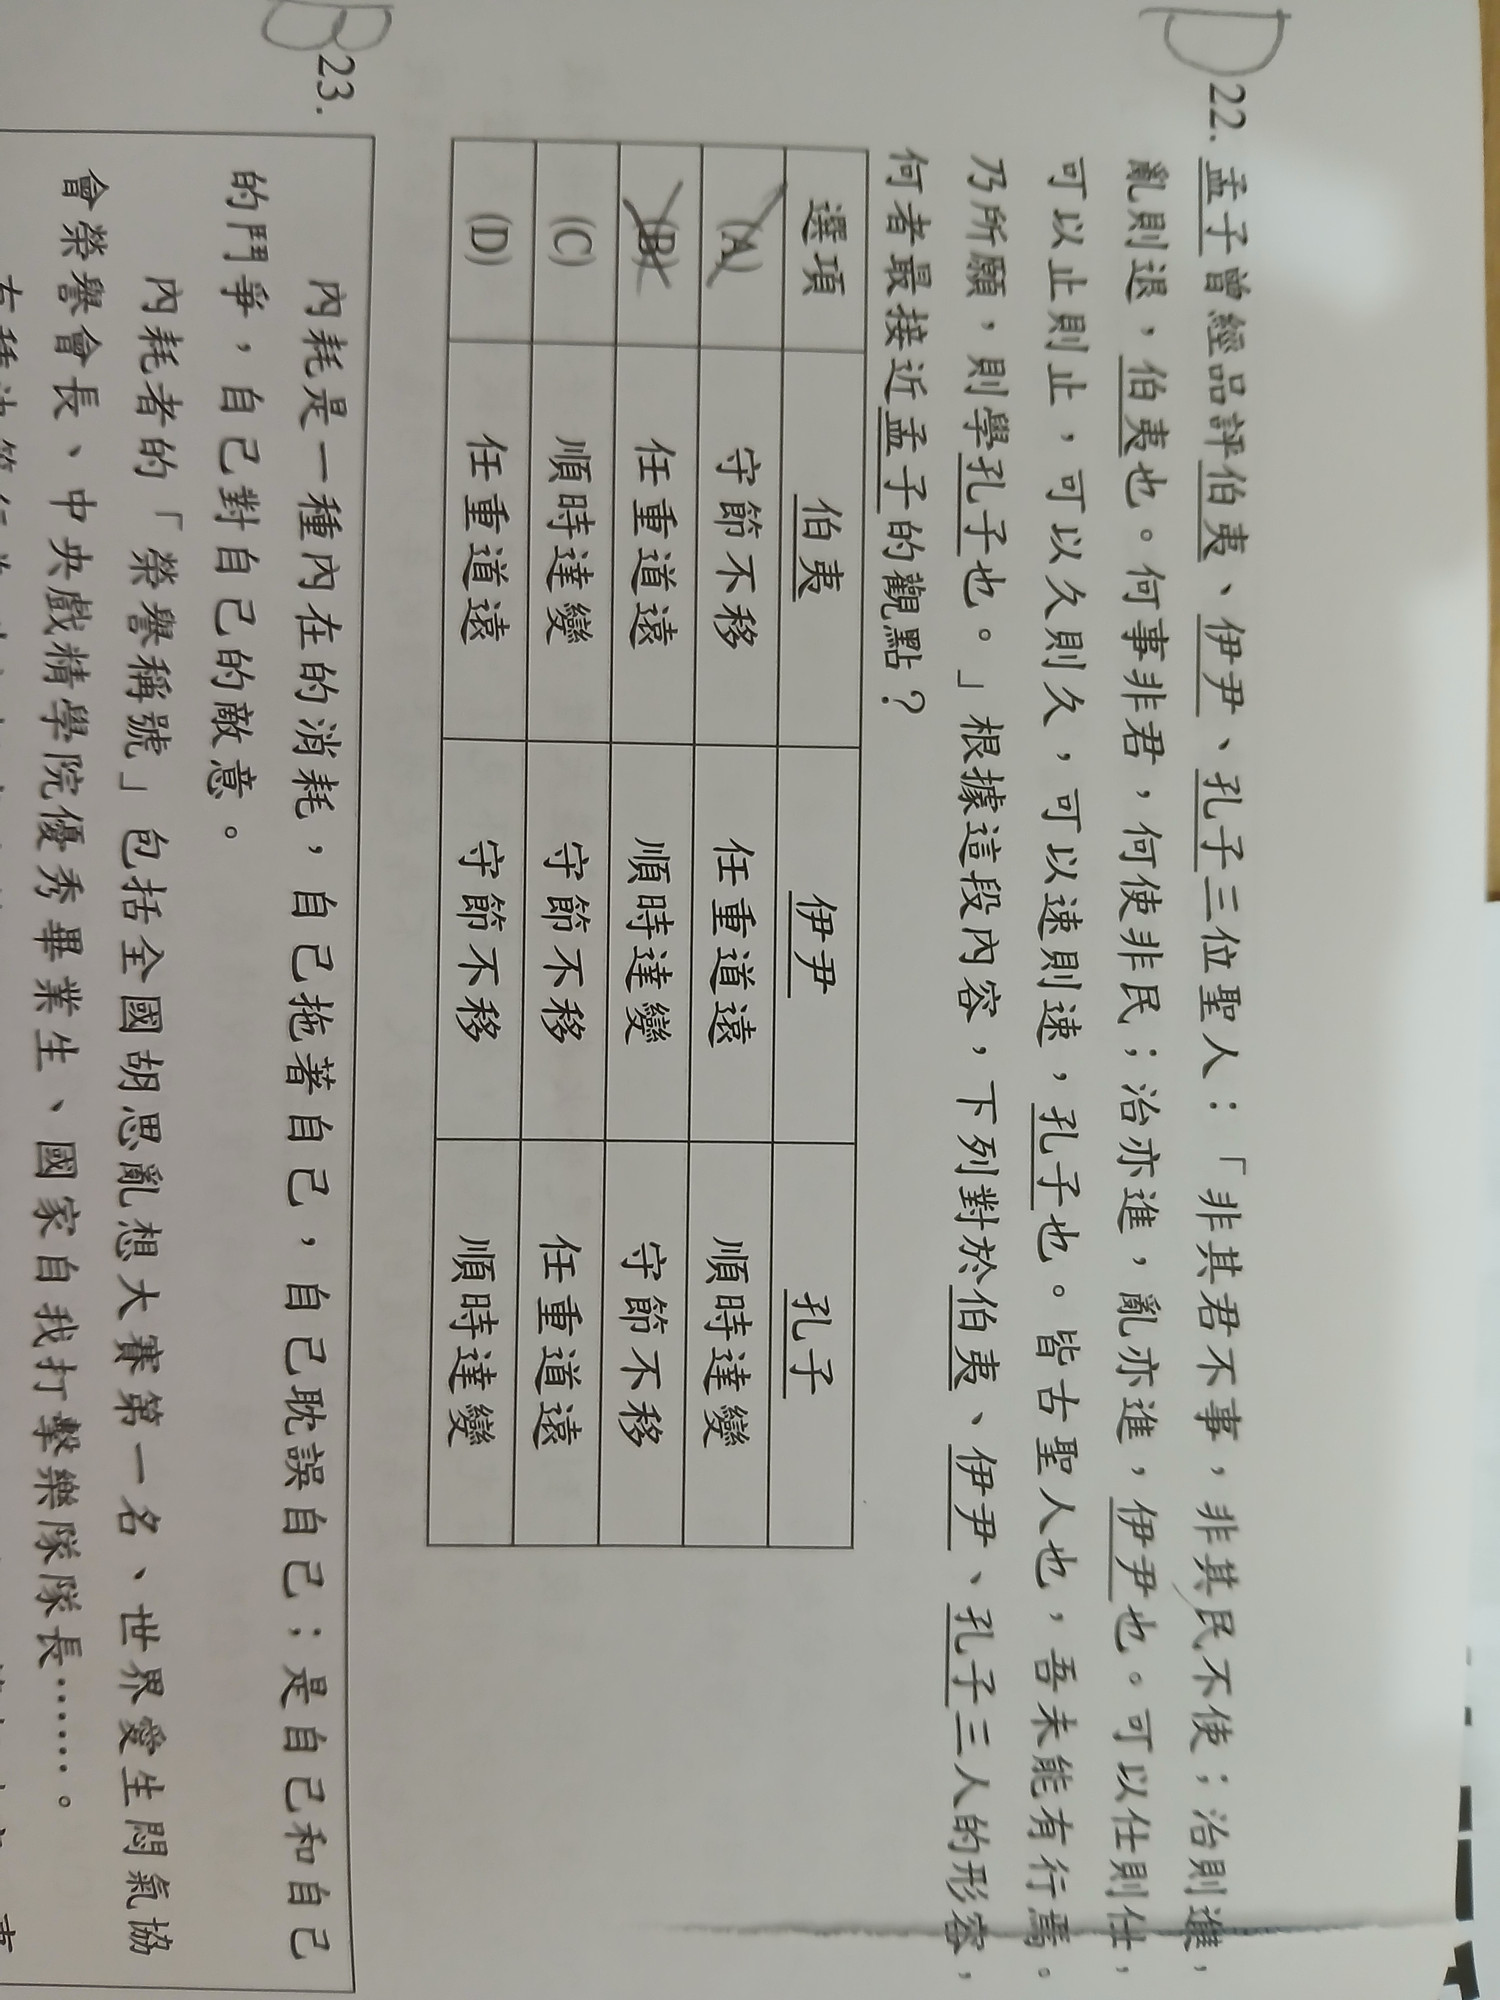 D 22. 孟子曾經品評伯夷、伊尹、孔子三位聖人：「非其君不事，非其民不使；治則進，
亂則退，伯夷也。何事非君，何使非民；治亦進，亂亦進，伊尹也。可以仕則仕，
可以止則止，可以久則久，可以速則速，孔子也。皆古聖人也，吾未能有行焉。
乃所願，則學孔子也。」根據這段內容，下列對於伯夷、伊尹、孔子三人的形容，
何者最接近孟子的觀點？
選項 伯夷 伊尹 孔子
(A) 守節不移 任重道遠 順時達變
(B) 任重道遠 順時達變 守節不移
(C) 順時達變 守節不移 任重道遠
(D) 任重道遠 守節不移 順時達變
B 23.
內耗是一種內在的消耗，自己拖著自己，自己耽誤自己；是自己和自己
的鬥爭，自己對自己的敵意。
內耗者的「榮譽稱號」包括全國胡思亂想大賽第一名、世界愛生悶氣協
會榮譽會長、中央戲精學院優秀畢業生、國家自我打擊樂隊隊長……。